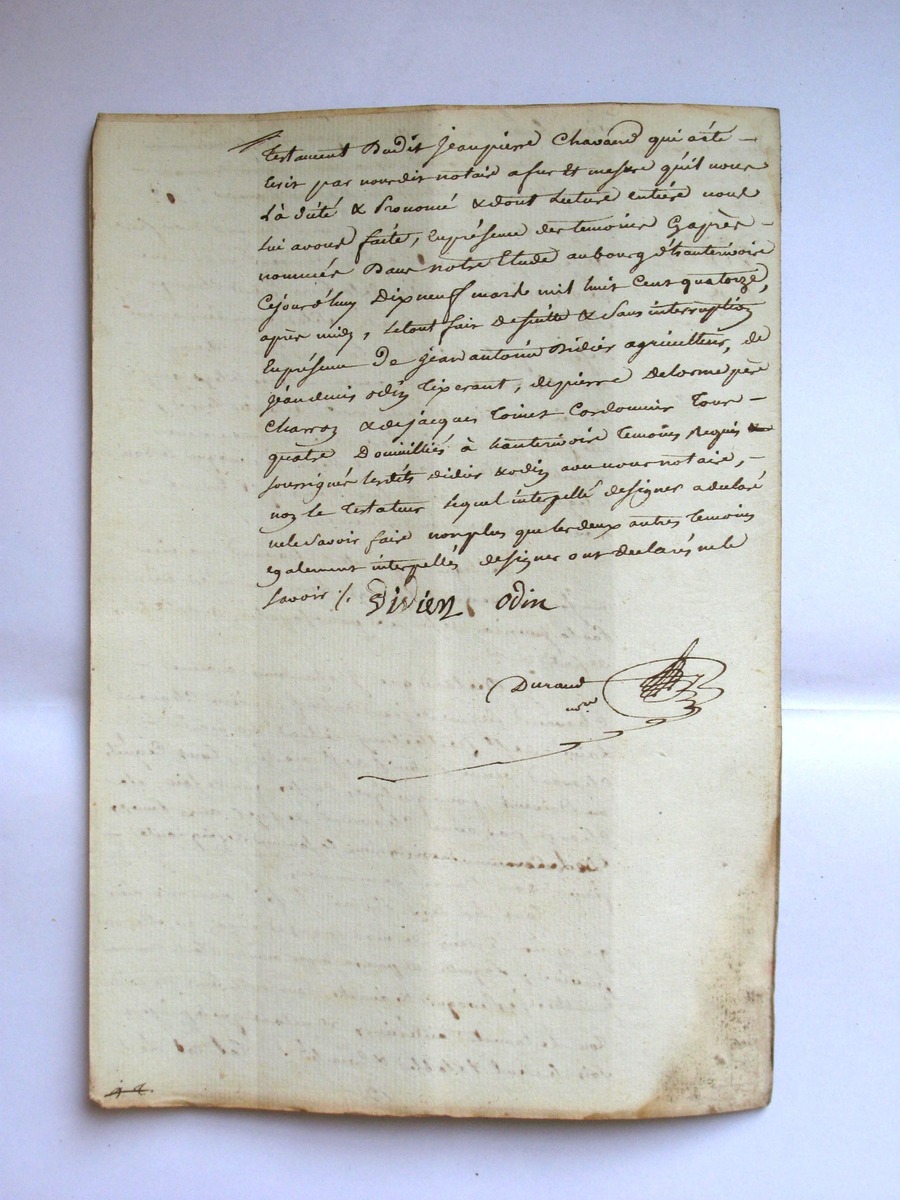 testament Dudit jeanpierre Chavand qui a été
Ecrit par nous dit notaire a fur & mesure qu'il nous
l'à dité & Prononcé & dont lecture entière nous
lui avons faite, En présence des temoins Cy après
nommés Dans notre Etude au bourg d'hauterivoire
Cejourd'huy Dix neuf mars mil huit Cent quatorze,
après midy, le tout fait de suitte & sans interruption
En présence De jean antoine Didier agriculteur, de
jean denis odin tixerant, de pierre Delorme père
Charron & de jacques Toinet Cordonnier Tous
quatre Domiciliés à hauterivoire temoins Requis
soussignés lesdits didier & odin avec nous notaire,
non le Testateur lequel interpellé de signer a declaré
ne le savoir faire non plus que les deux autres temoins
egalement interpellés de signer ont declarés ne le
savoir /.
Didier odin
Durand
nre